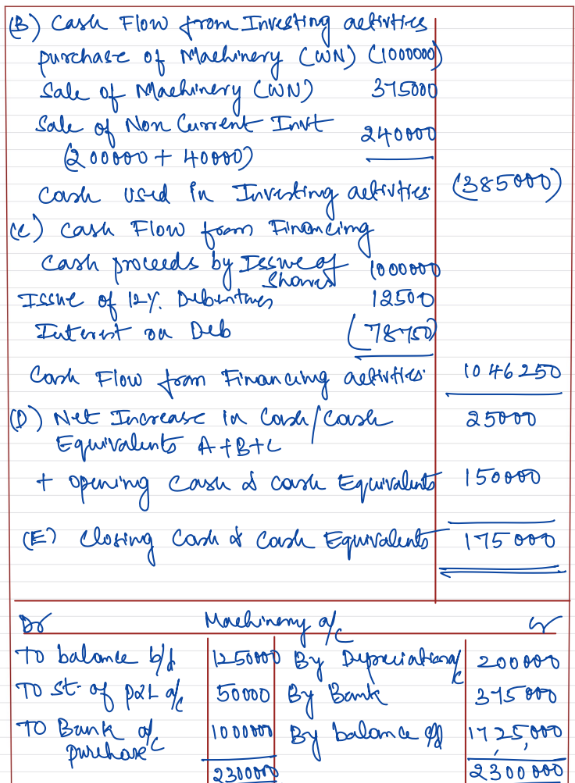 (B) Cash Flow from Investing activities
purchase of Machinery (WN) (1000000)
Sale of Machinery (WN) 375000
Sale of Non Current Invt 240000
(200000 + 40000)
Cash used in Investing activities (385000)
(C) Cash Flow from Financing
Cash proceeds by Issue of Shares 1000000
Issue of 12% Debentures 12500
Interest on Deb (78750)
Cash Flow from Financing activities 1046250
(D) Net Increase in Cash/Cash 25000
Equivalents A+B+C
+ opening Cash & Cash Equivalents 150000
(E) Closing Cash & Cash Equivalents 175000
Dr Machinery a/c Cr
TO balance b/d 1250000 By Depreciation a/c 200000
TO St. of P&L a/c 50000 By Bank 375000
TO Bank a/c 1000000 By balance c/d 1725,000
purchase
2300000 2300000